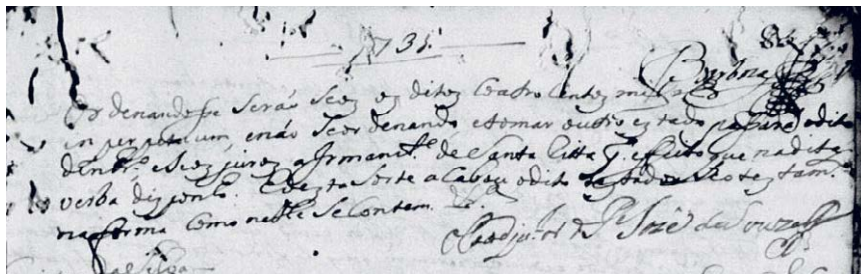 1731.
Barboza
Ordenandose serão seos os ditos coatro centos mil rs
in perpetuum, e não se ordenando, e tomar outro estado passará o dito
dinhro. e seos juros a Irmand.e de Santa Ritta pa. o efeito que na dita
verba dispoulo. E desta sorte acabou o dito testador seo testam.to
na forma como nelle se contem.
O Coadjutor Pe. Jozé de Souza